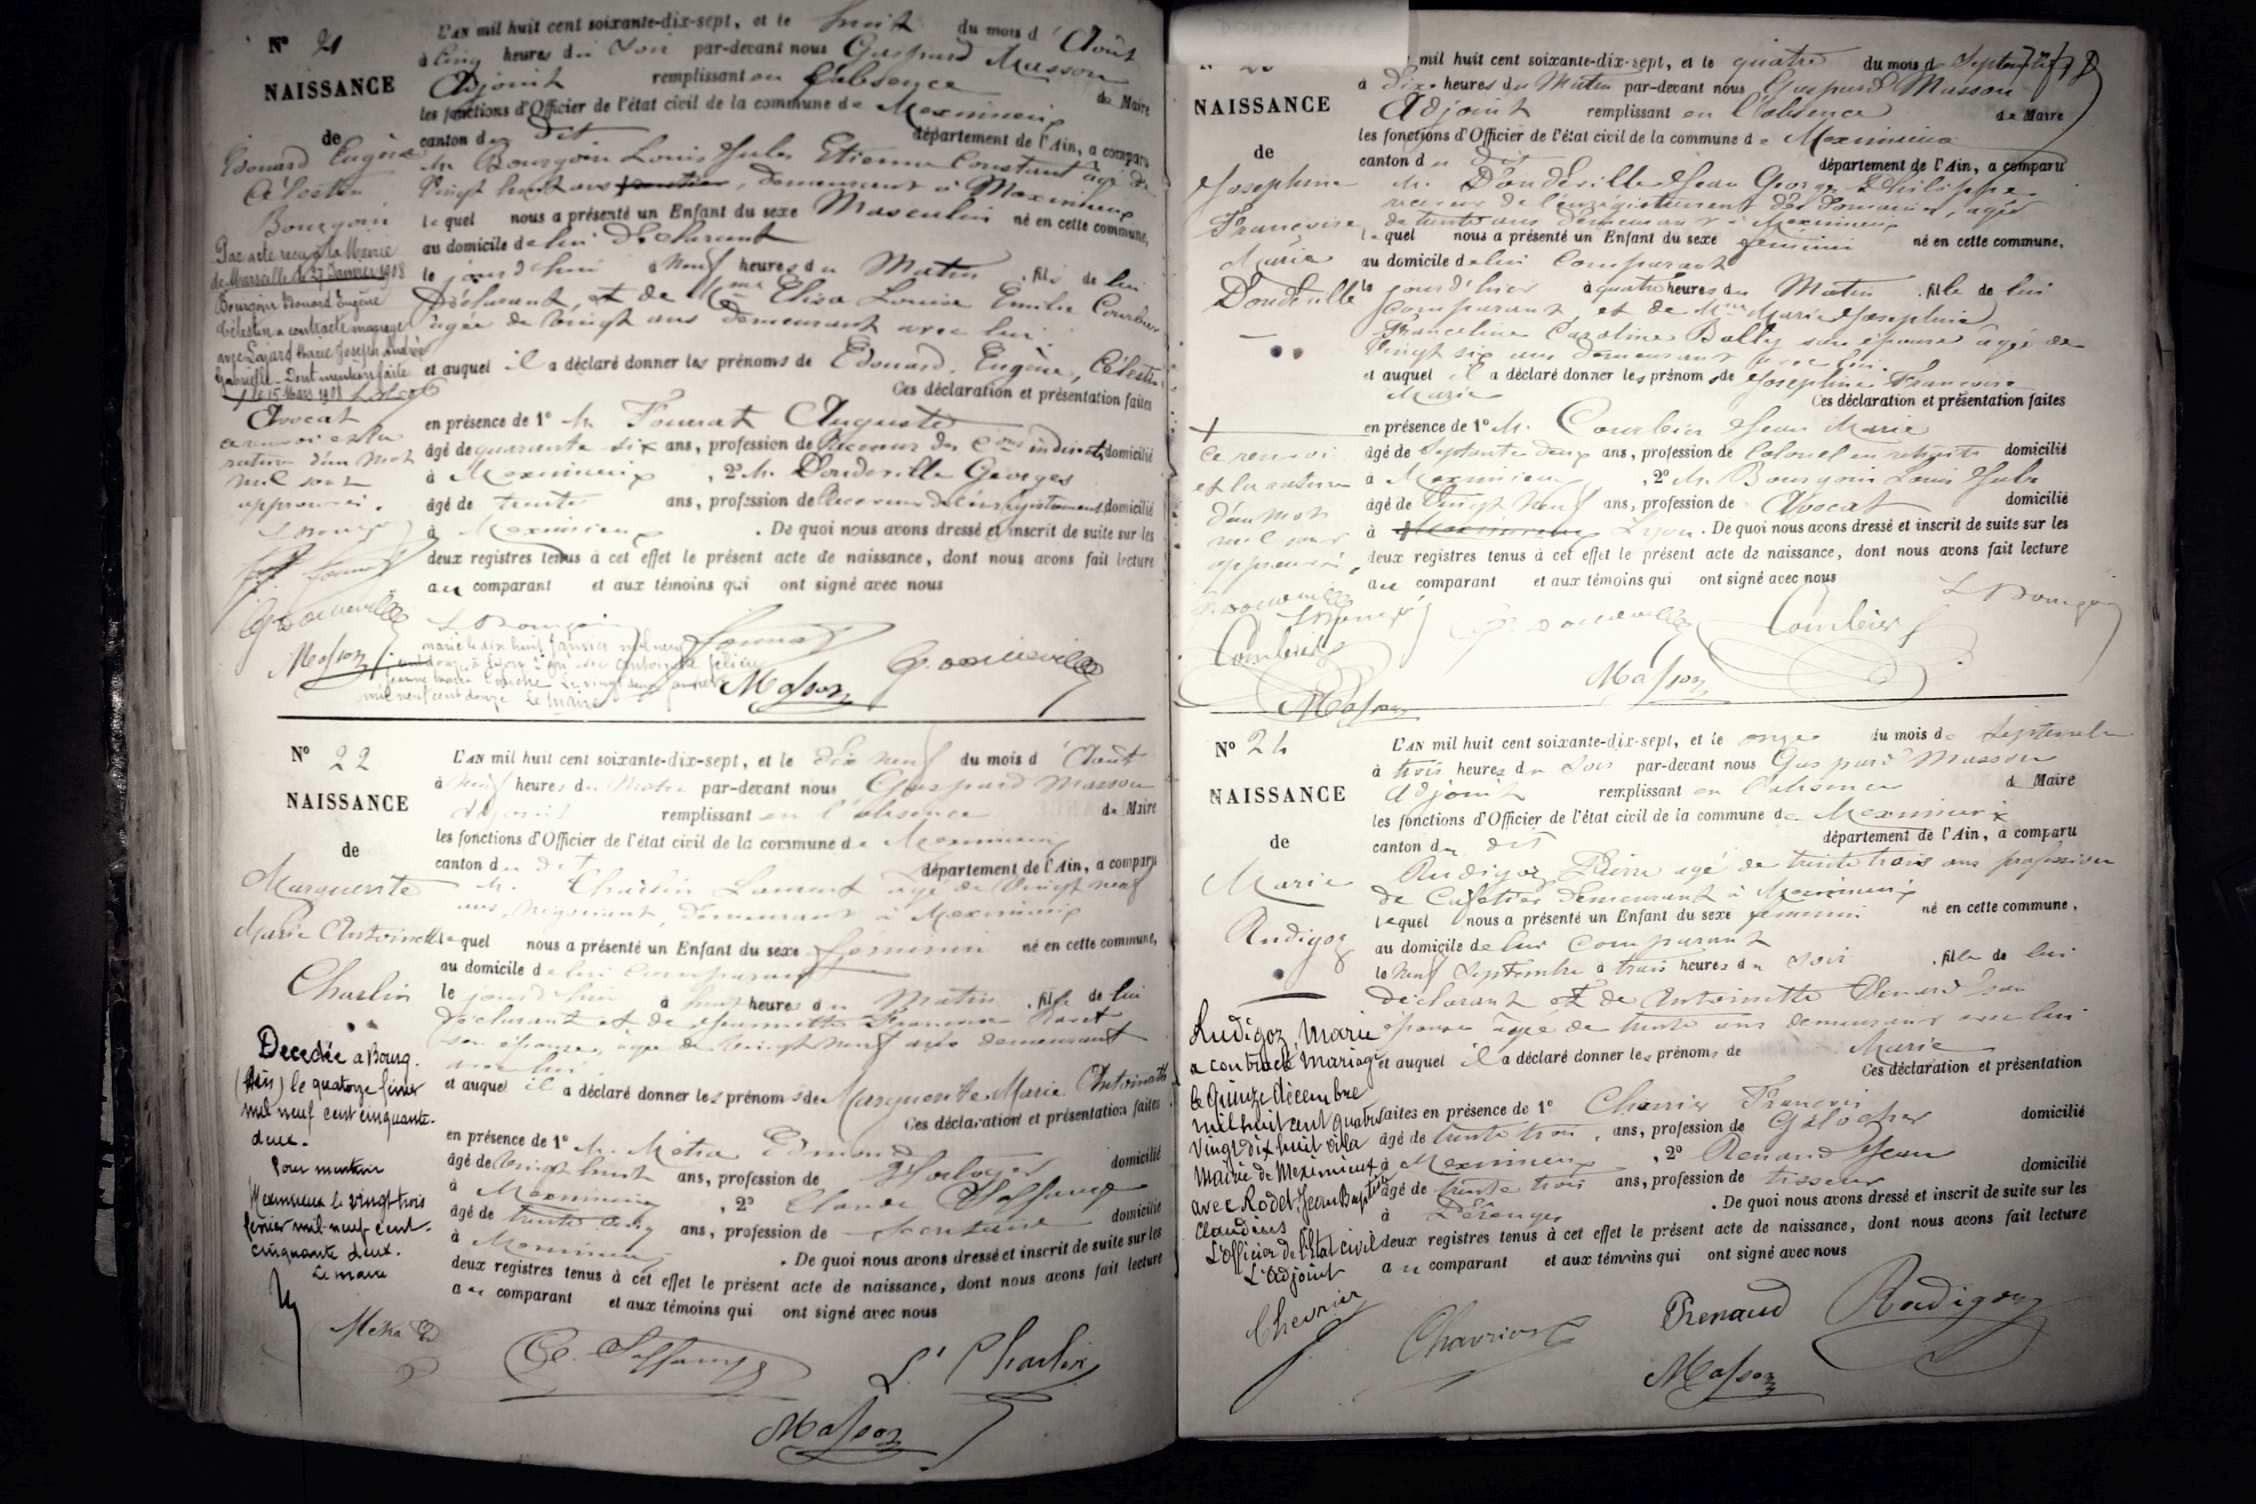 N° 21
NAISSANCE
de
Edouard Eugène
Célestin
Bourgoin
Par acte reçu à la Mairie
de Marseille le 27 Janvier 1908
Bourgoin Edouard Eugène
Célestin a contracté mariage
avec Lajard Marie Joseph Andrée
Gabrielle. Dont mention faite
le 15 Mars 1908
Avocat
ce renvoi et la
rature d'un mot
nul sont
approuvés.
L'AN mil huit cent soixante-dix-sept, et le huit du mois d'Août
à cinq heures du Soir par-devant nous Gaspard Masson
Adjoint remplissant en l'absence de Maire
les fonctions d'Officier de l'état civil de la commune de Meximieux
canton du dit département de l'Ain, a comparu
Mr Bourgoin Louis Jules Etienne Constant âgé de
Vingt huit ans, demeurant à Meximieux
lequel nous a présenté un Enfant du sexe Masculin né en cette commune,
au domicile de lui Déclarant
le jourd'hui à Neuf heures du Matin, fils de lui
Déclarant, et de Mme Elisa Louise Emilie Courbier
âgée de Vingt ans demeurant avec lui.
et auquel il a déclaré donner les prénoms de Edouard, Eugène, Célestin
Ces déclaration et présentation faites
en présence de 1° Mr Fournat Auguste
âgé de quarante six ans, profession de Receveur des Cions indirectes domicilié
à Meximieux, 2° Mr Doudeville Georges
âgé de trente ans, profession de Receveur de l'enregistrement domicilié
à Meximieux. De quoi nous avons dressé et inscrit de suite sur les
deux registres tenus à cet effet le présent acte de naissance, dont nous avons fait lecture
au comparant et aux témoins qui ont signé avec nous
G. Doudeville
L Bourgoin
Masson
marié le dix huit Janvier mil neuf
cent douze à Lyon
mil neuf cent douze Le Maire
Masson
G. Doudeville
N° 22
NAISSANCE
de
Marguerite
Marie Antoinette
Charlin
Decedée à Bourg.
(Ain) le quatorze février
mil neuf cent cinquante-
deux.
Pour mention
Meximieux le vingt trois
février mil neuf cent-
cinquante deux.
Le maire
L'AN mil huit cent soixante-dix-sept, et le dix neuf du mois d'Août
à Neuf heures du Matin par-devant nous Gaspard Masson
Adjoint remplissant en l'absence de Maire
les fonctions d'Officier de l'état civil de la commune de Meximieux
canton du dit département de l'Ain, a comparu
Mr Charlin Laurent âgé de Vingt neuf
ans, Négociant, demeurant à Meximieux
lequel nous a présenté un Enfant du sexe féminin né en cette commune,
au domicile de lui Comparant
le jourd'hui à huit heures du Matin, fille de lui
Déclarant et de Jeannette Françoise
son épouse, âgée de Vingt neuf ans demeurant
avec lui
et auquel il a déclaré donner les prénoms de Marguerite Marie Antoinette
Ces déclaration et présentation faites
en présence de 1° Mr Métra Edmond
âgé de Vingt huit ans, profession de Horloger domicilié
à Meximieux, 2° Claude
âgé de trente cinq ans, profession de domicilié
à Meximieux. De quoi nous avons dressé et inscrit de suite sur les
deux registres tenus à cet effet le présent acte de naissance, dont nous avons fait lecture
au comparant et aux témoins qui ont signé avec nous
Métra Ed
L. Charlin
Masson
NAISSANCE
de
Josephine
Françoise
Marie
Doudeville
Ce renvoi
et la rature
d'un mot
nul sont
approuvés.
mil huit cent soixante-dix-sept, et le quatre du mois de Septembre
à Dix heures du Matin par-devant nous Gaspard Masson
Adjoint remplissant en l'absence de Maire
les fonctions d'Officier de l'état civil de la commune de Meximieux
canton du dit département de l'Ain, a comparu
Mr Doudeville Jean George Philippe
receveur de l'enregistrement des Domaines, agé
de trente ans demeurant à Meximieux
lequel nous a présenté un Enfant du sexe féminin né en cette commune,
au domicile de lui Comparant
le jourd'hier à quatre heures du Matin, fille de lui
Comparant, et de Mme Marie Josephine
Franceline Caroline Bally son épouse âgée de
Vingt six ans demeurant avec lui.
et auquel il a déclaré donner les prénoms de Josephine Françoise
Marie
Ces déclaration et présentation faites
en présence de 1° M. Courbier Jean Marie
âgé de Septante deux ans, profession de Colonel en retraite domicilié
à Meximieux, 2° Mr Bourgoin Louis Jules
âgé de Vingt Neuf ans, profession de Avocat domicilié
à Lyon. De quoi nous avons dressé et inscrit de suite sur les
deux registres tenus à cet effet le présent acte de naissance, dont nous avons fait lecture
au comparant et aux témoins qui ont signé avec nous
G. Doudeville
L Bourgoin
Courbier
G. Doudeville
Courbier
L Bourgoin
Masson
Masson
N° 24
NAISSANCE
de
Marie
Rudigoz
Rudigoz Marie
a contracté mariage
le Quinze décembre
mil huit cent quatre
vingt dix huit à la
Mairie de Meximieux
avec Rodet Jean Baptiste
Claudius
L'officier de l'Etat civil
L'adjoint
Chevrier
L'AN mil huit cent soixante-dix-sept, et le onze du mois de Septembre
à trois heures du Soir par-devant nous Gaspard Masson
Adjoint remplissant en l'absence de Maire
les fonctions d'Officier de l'état civil de la commune de Meximieux
canton du dit département de l'Ain, a comparu
Rudigoz Pierre agé de trente trois ans profession
de Cafetier demeurant à Meximieux
lequel nous a présenté un Enfant du sexe féminin né en cette commune,
au domicile de lui Comparant
le Neuf Septembre à trois heures du Soir, fille de lui
Déclarant et de Antoinette Venard son
épouse agée de trente ans demeurant avec lui
et auquel il a déclaré donner les prénoms de Marie
Ces déclaration et présentation
faites en présence de 1° Charrier François
âgé de trente trois ans, profession de Galocher domicilié
à Meximieux, 2° Renaud Jean
âgé de trente trois ans, profession de tisseur domicilié
à Pérouges. De quoi nous avons dressé et inscrit de suite sur les
deux registres tenus à cet effet le présent acte de naissance, dont nous avons fait lecture
au comparant et aux témoins qui ont signé avec nous
Renaud
Rudigoz
Masson